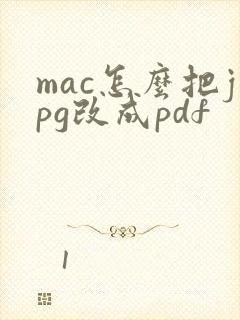 mac怎麼把j
pg改成pdf
1